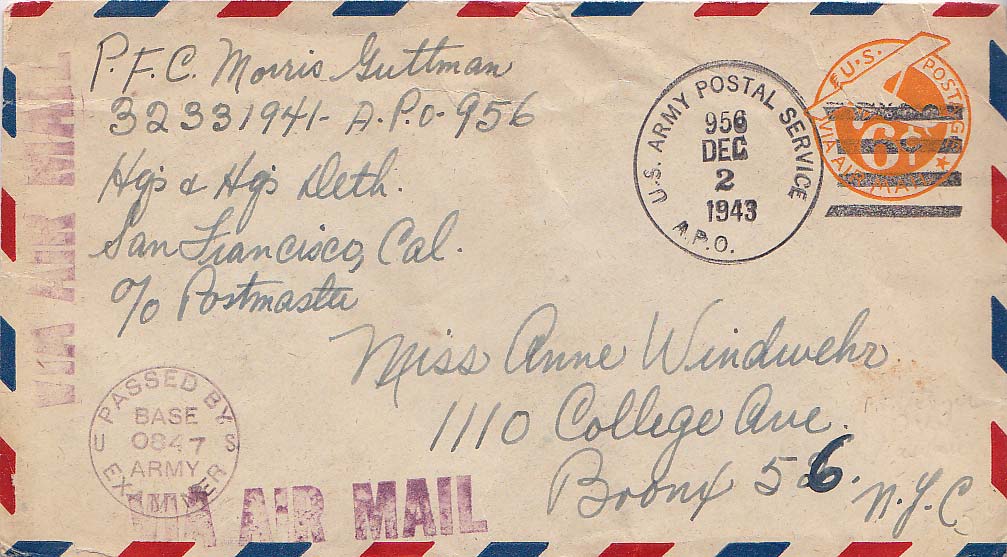 P.F.C. Morris Guttman
32331941- A.P.O-956
Hqs & Hqs Deth.
San Francisco, Cal.
c/o Postmaster
U.S. ARMY POSTAL SERVICE
956
DEC
2
1943
A.P.O.
U.S. POSTAGE
6¢
VIA AIR MAIL
Miss Anne Windwehr
1110 College Ave.
Bronx 56. N.Y.C
VIA AIR MAIL
PASSED BY
BASE
U 0847 S
ARMY
EXAMINER
VIA AIR MAIL